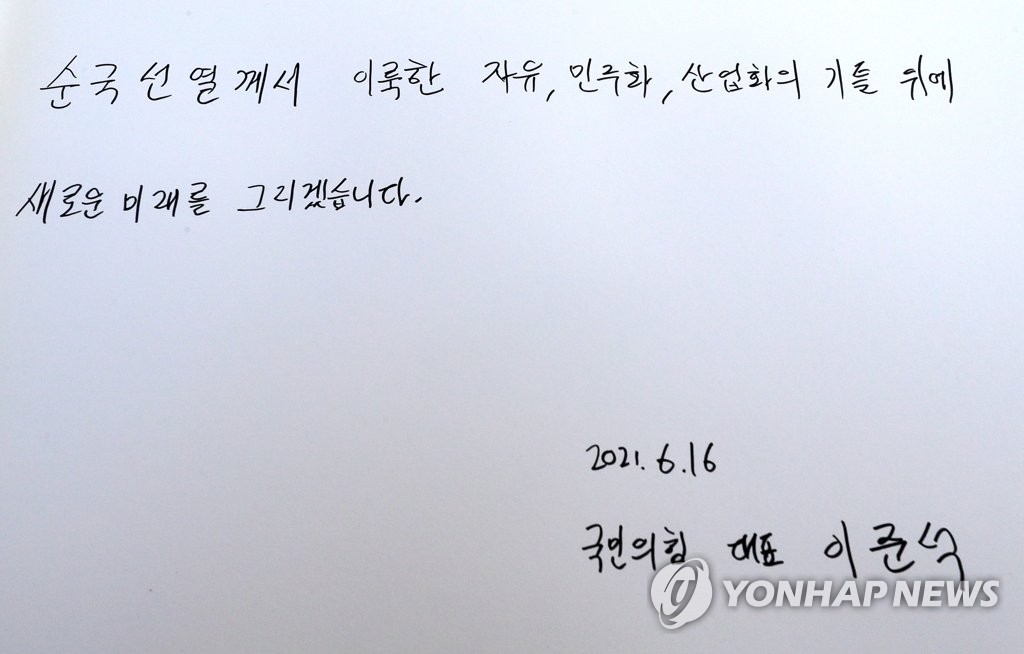 순국선열께서 이룩한 자유, 민주화, 산업화의 기틀 위에
새로운 미래를 그리겠습니다.
2021. 6.16
국민의힘 대표 이준석
YONHAP NEWS